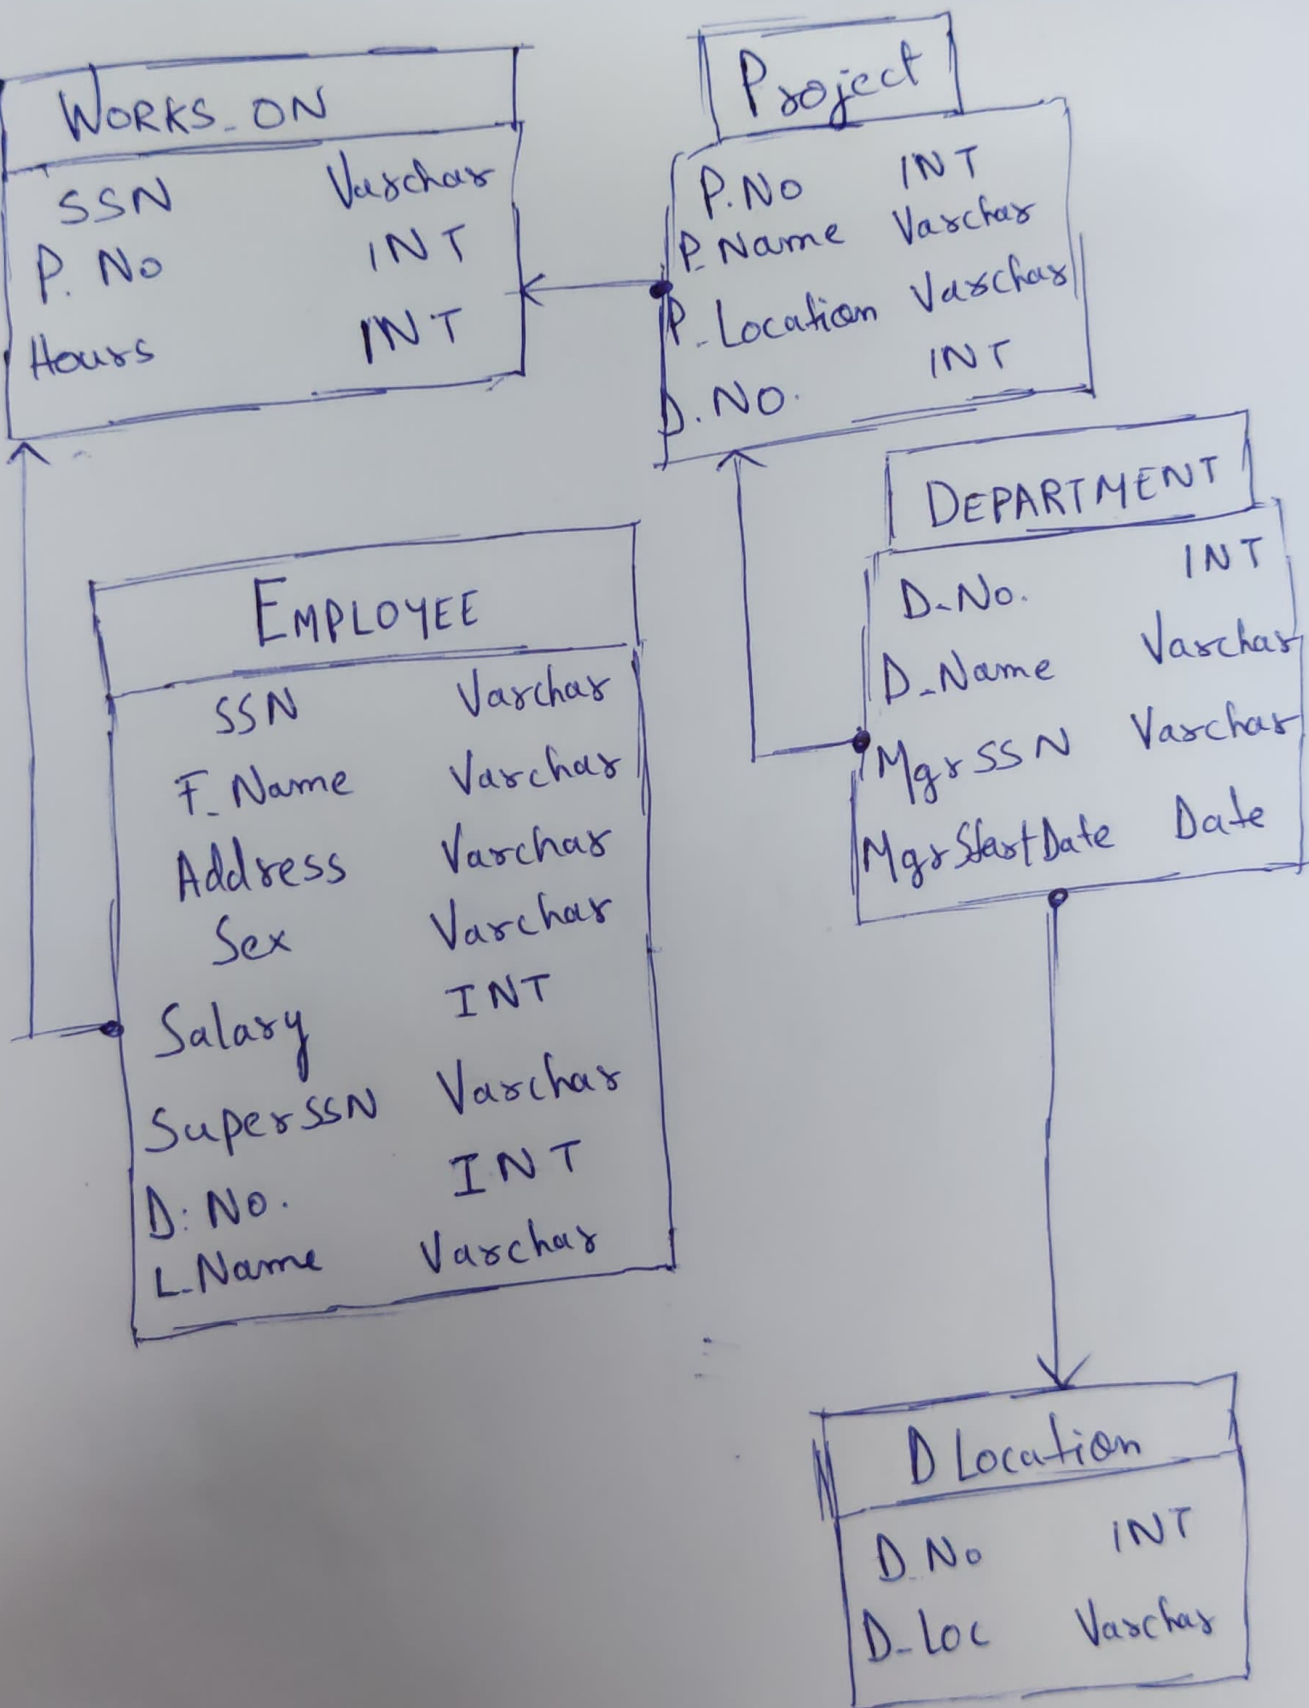 WORKS_ON
SSN Varchar
P. No INT
Hours INT
Project
P.No INT
P_Name Varchar
P_Location Varchar
D.NO. INT
DEPARTMENT
D_No. INT
D_Name Varchar
MgrSSN Varchar
MgrStartDate Date
EMPLOYEE
SSN Varchar
F_Name Varchar
Address Varchar
Sex Varchar
Salary INT
SuperSSN Varchar
D: No. INT
L_Name Varchar
D Location
D_No INT
D_Loc Varchar